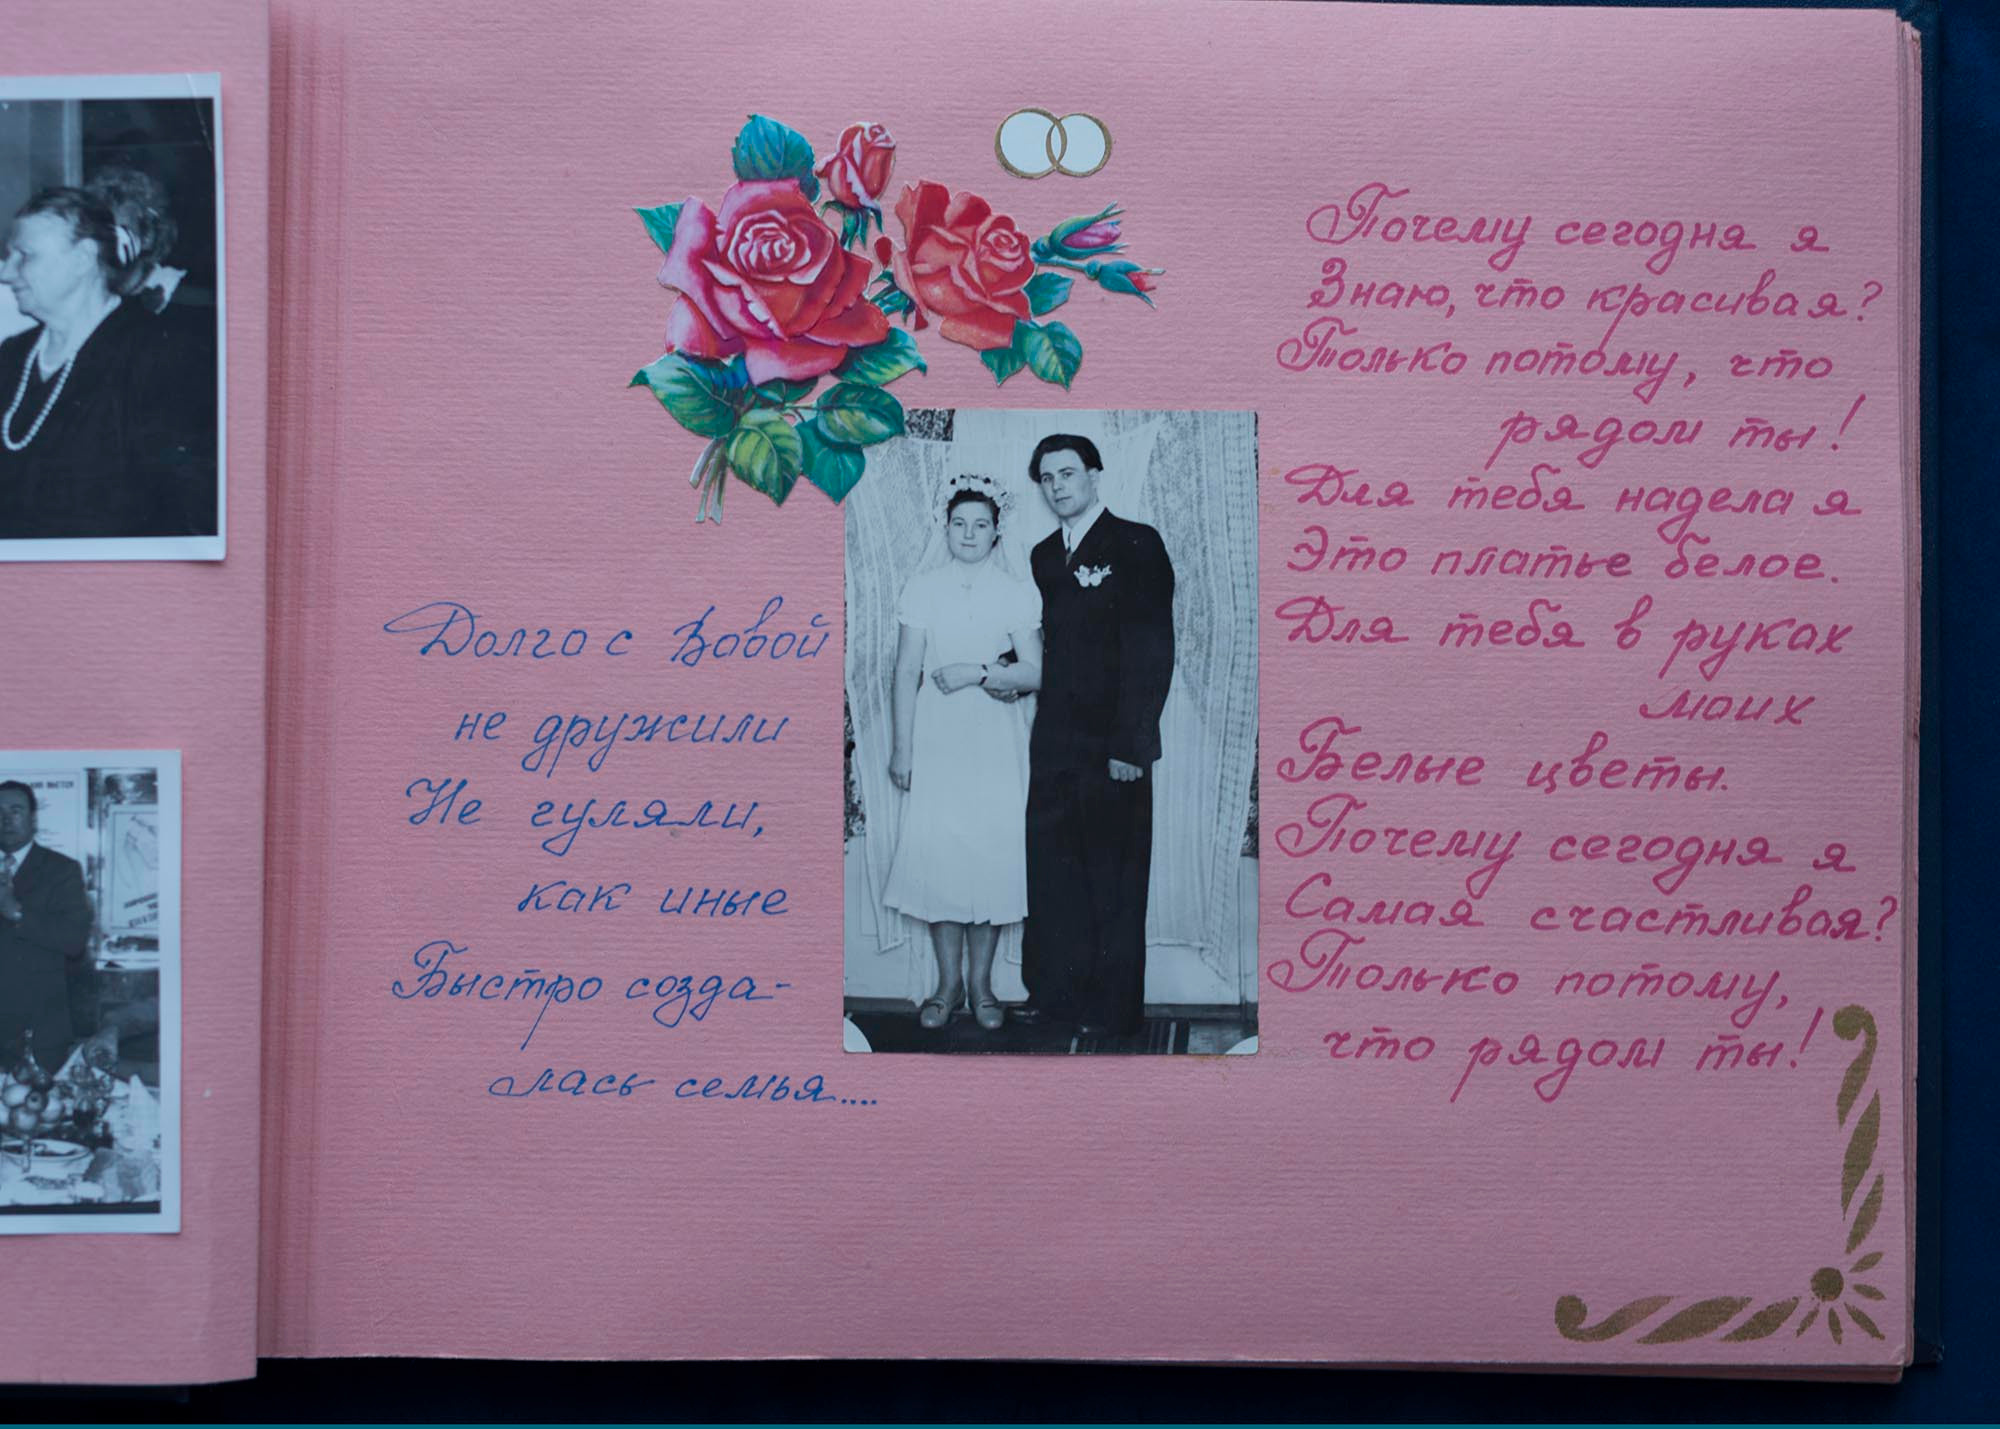 Долго с Вовой
не дружили
Не гуляли,
как иные
Быстро созда-
лась семья....
Почему сегодня я
Знаю, что красивая?
Только потому, что
рядом ты!
Для тебя надела я
Это платье белое.
Для тебя в руках
моих
Белые цветы.
Почему сегодня я
Самая счастливая?
Только потому,
что рядом ты!